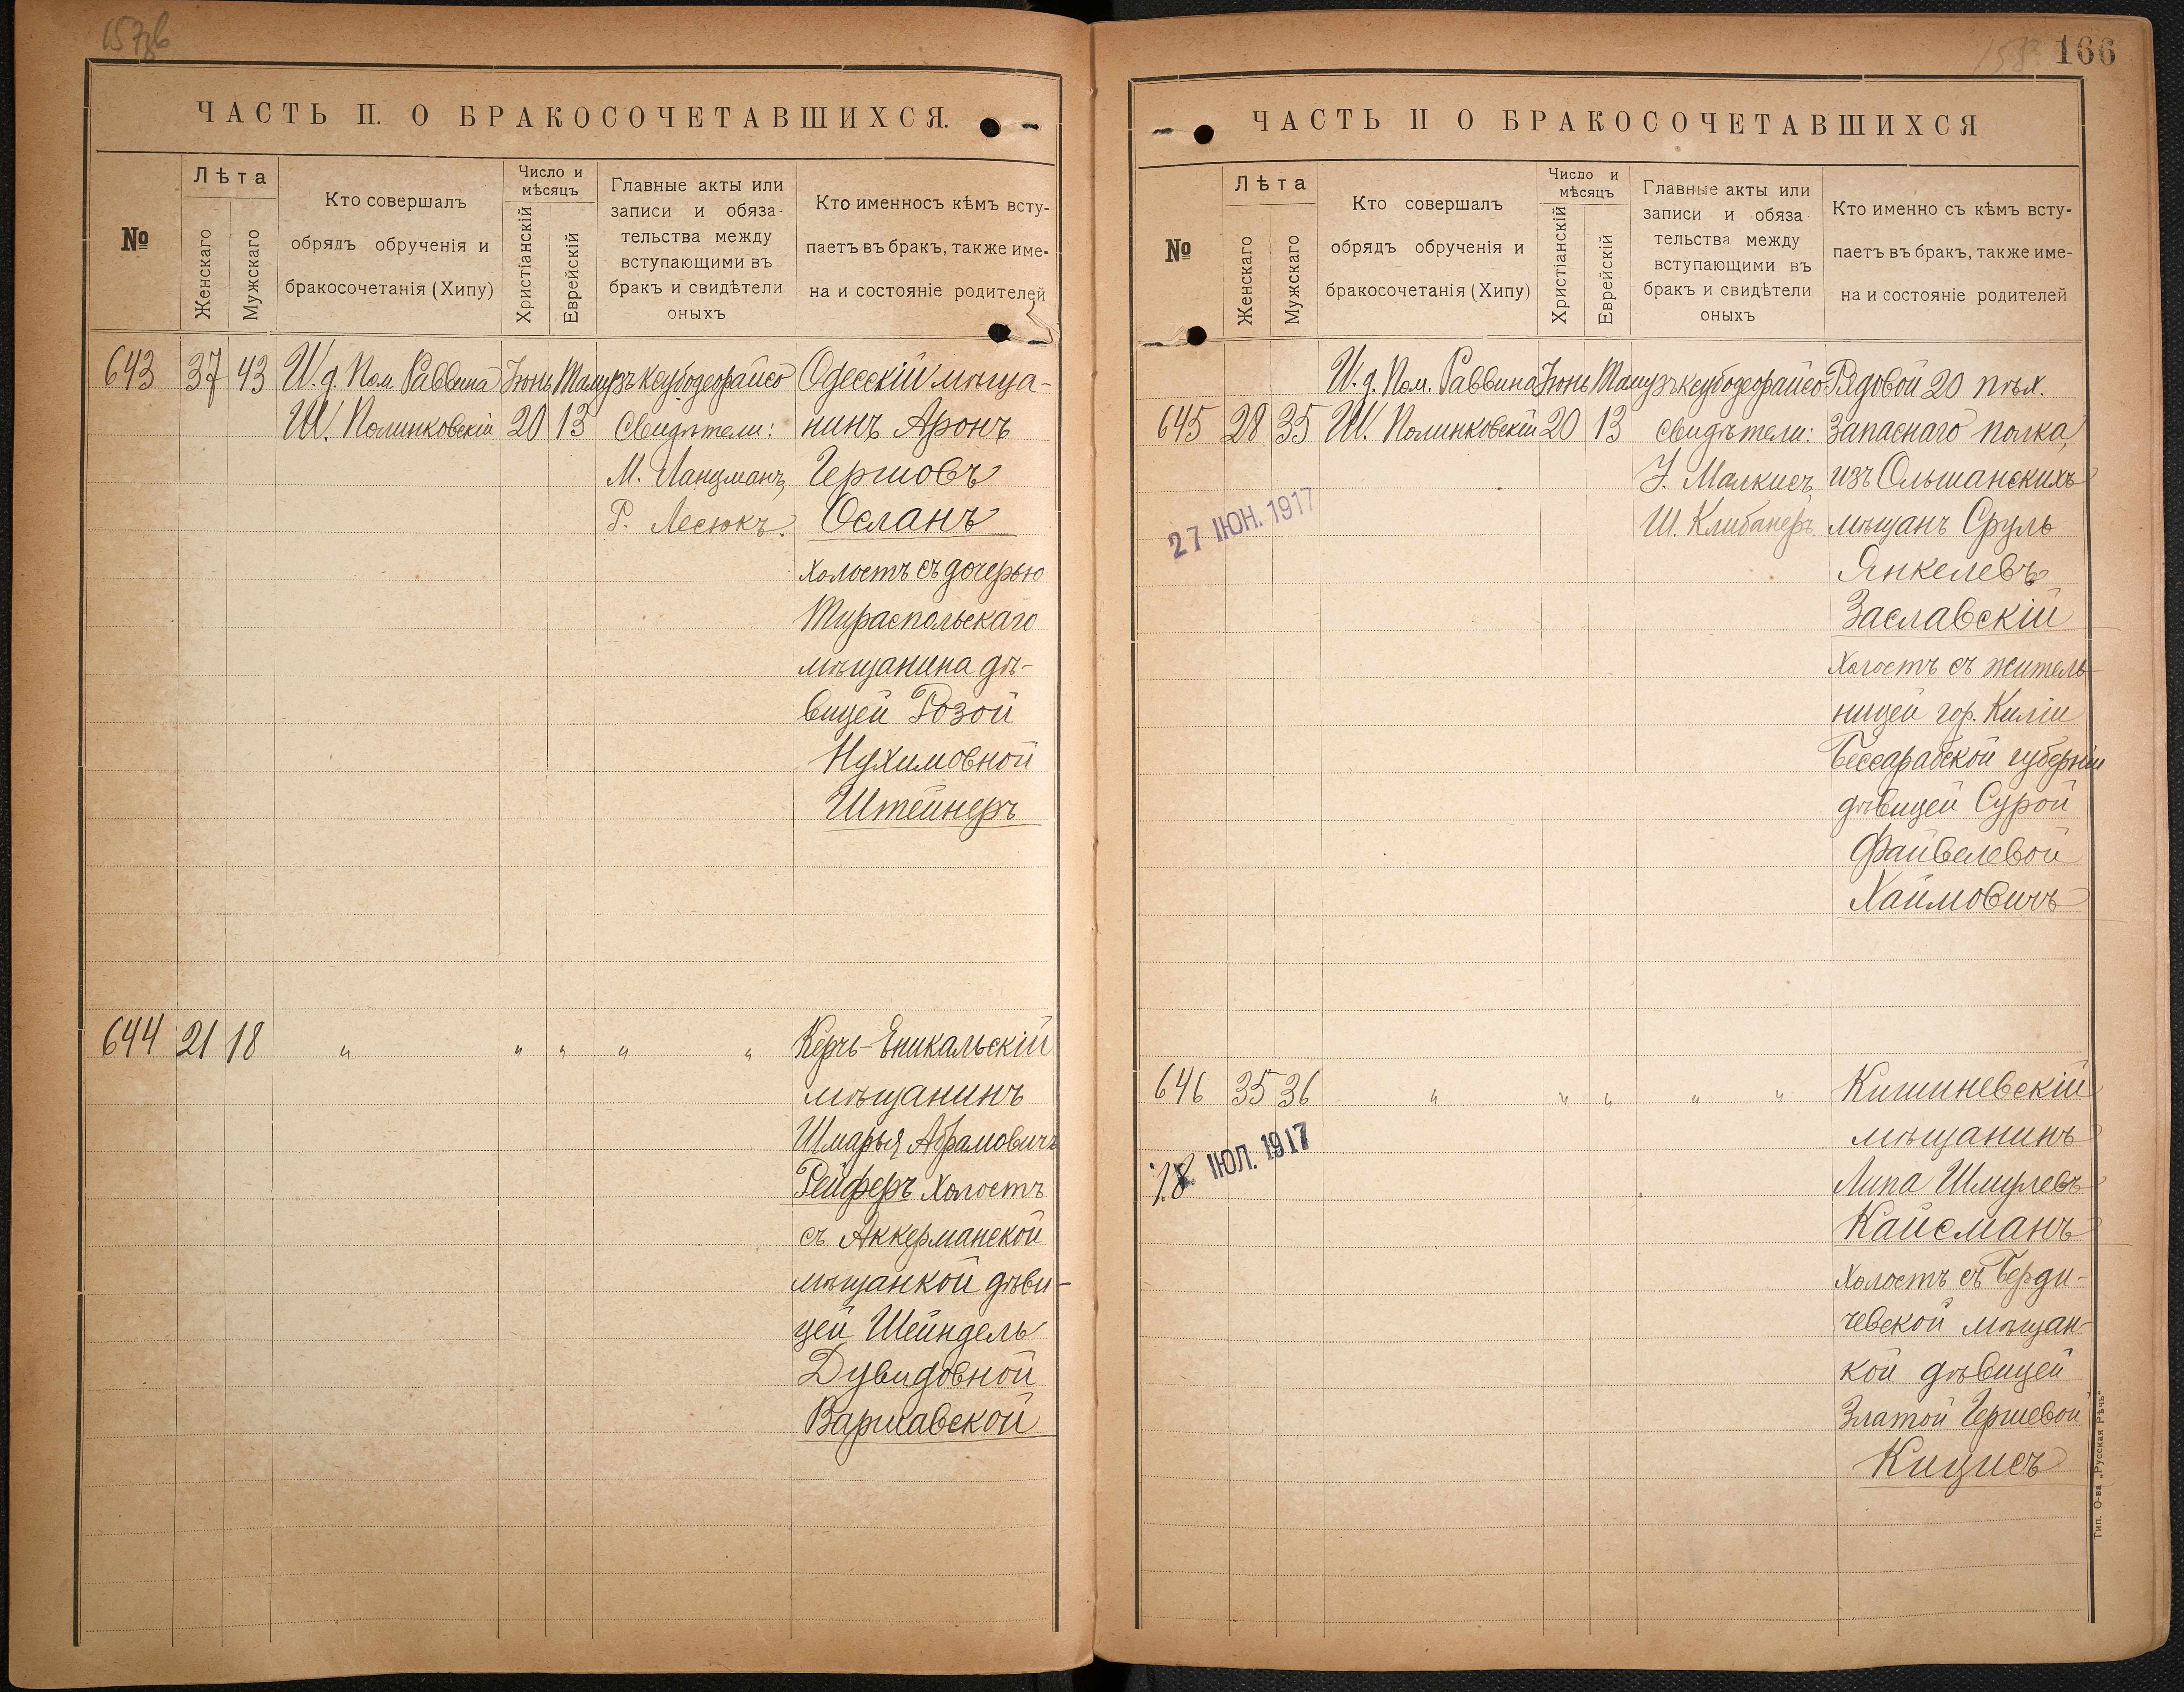 ЧАСТЬ II. О БРАКОСОЧЕТАВШИХСЯ.
№
Лѣта
Женскаго
Мужскаго
Кто совершалъ
обрядъ обрученія и
бракосочетанія (Хипу)
Число и
мѣсяцъ
Христіанскій
Еврейскій
Главные акты или
записи и обяза-
тельства между
вступающими въ
бракъ и свидѣтели
оныхъ
Кто именносъ кѣмъ всту-
паетъ въ бракъ, также име-
на и состояніе родителей
643 37 43 И. д. Пом. Раввина Іюнь Тамузъ ксубодеорайсо Одесскій мѣща-
Ш. Полинковскій 20 13 Свидѣтели: нинъ Аронъ
М. Ланцманъ, Гершовъ
Р. Лесюкъ. Осланъ
холостъ съ дочерью
Тираспольскаго
мѣщанина дѣ-
вицей Розой
Нухимовной
Штейнеръ
644 21 18 " " " " " Керчь-Еникальскій
мѣщанинъ
Шмарья Абрамовичъ
Рейферъ холостъ
съ Аккерманской
мѣщанкой дѣви-
цей Шейндель
Дувидовной
Варшавской
166
ЧАСТЬ II О БРАКОСОЧЕТАВШИХСЯ
№
Лѣта
Женскаго
Мужскаго
Кто совершалъ
обрядъ обрученія и
бракосочетанія (Хипу)
Число и
мѣсяцъ
Христіанскій
Еврейскій
Главные акты или
записи и обяза
тельства между
вступающими въ
бракъ и свидѣтели
оныхъ
Кто именно съ кѣмъ всту-
паетъ въ бракъ, также име-
на и состояніе родителей
И. д. Пом. Раввина Іюнь Тамузъ ксубодеорайсо Рядовой 20 пѣх.
645 28 35 Ш. Полинковскій 20 13 свидѣтели: запаснаго полка,
У. Малкисъ изъ Ольшанскихъ
27 ІЮН. 1917 Ш. Клибанеръ мѣщанъ Сруль
Янкелевъ
Заславскій
холостъ съ житель-
ницей гор. Киліи
Бессарабской губерніи
дѣвицей Сурой
Файвелевой
Хаймовичъ
646 35 36 " " " " " Кишиневскій
мѣщанинъ
18 ІЮЛ. 1917 Липа Шмулевъ
Кайсманъ
холостъ съ Берди-
чевской мѣщан-
кой дѣвицей
Златой Гершевой
Кицисъ
Тип. О-ва „Русская Рѣчь"